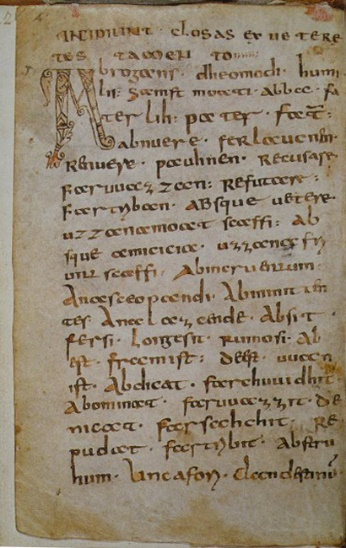 INCIPIUNT CLOSAS EX UETERE
TES TAMEN TO
Abrogans · dheomodi · humi
lis: samft moati · abba · fa
ter lih: pater · fater:
abnuere · ferlaucnen·
Renuere · pauhnen · Recusare
faruuazzan: Refutare:
fartriban · Absque uetere·
uzzana moat scaffi: Ab
sque amicicia · uzzana fri
unt scaffi · Abineruenum·
Ana sceopandi · Abinint
tes Ana lazzende · Absit·
fersi · Longe sit · Rumo si · Ab
est · fram ist: deest · uuan
ist · Abdicat · farchuuidhit·
Abominat · faruuazzit · De
nicat · farsahchit · Re
pudiat · fartribit · Abstru
hum · Uncafori · Clandestinū·